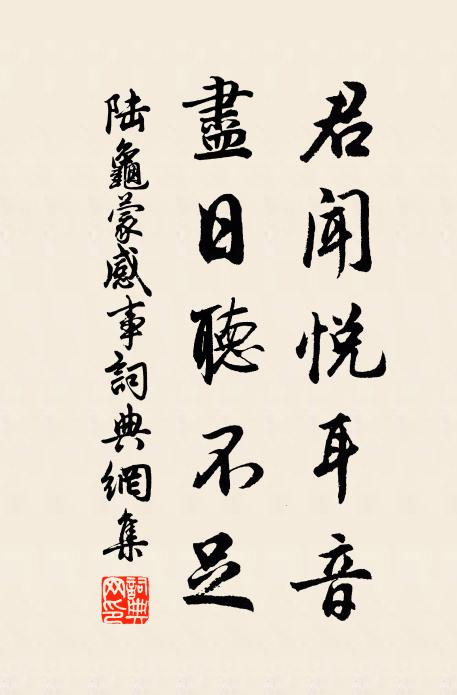 君聞悦耳音
盡日聽不足
陆龜蒙感事詞典網集
詞典网印